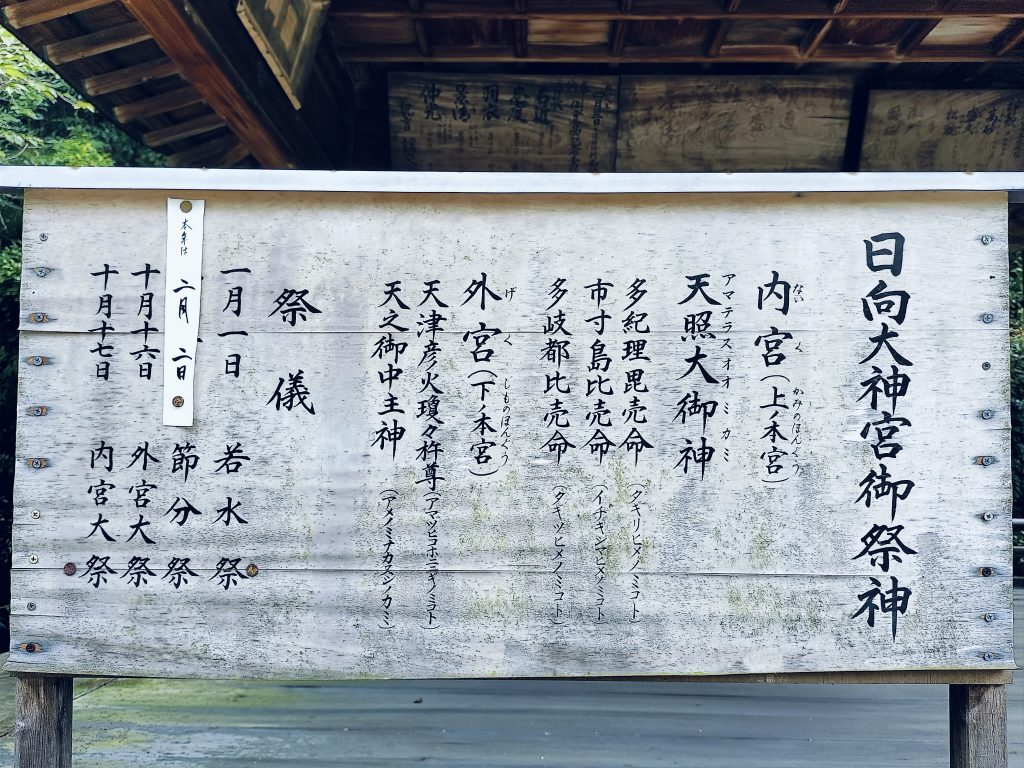 日向大神宮御祭神
内宮(上ノ本宮)
ないくかみのほんぐう
天照大御神
アマテラスオオミカミ
多紀理毘売命(タキリヒメノミコト)
市寸島比売命(イチキシマヒメノミコト)
多岐都比売命(タキツヒメノミコト)
外宮(下ノ本宮)
げくしものほんぐう
天津彦火瓊々杵尊(アマツヒコホニニギノミコト)
天之御中主神(アメノミナカヌシノカミ)
祭儀
一月一日 若水祭
本年は 二月二日 節分祭
十月十六日 外宮大祭
十月十七日 内宮大祭